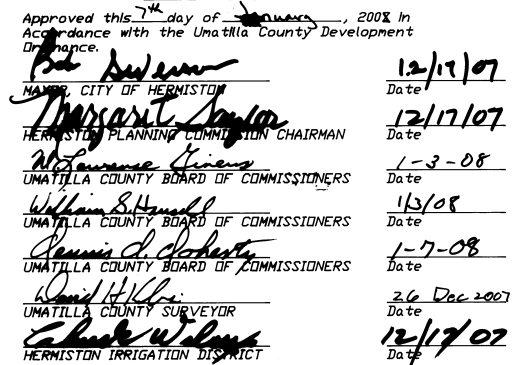 Approved this 7th day of January, 2008 in
Accordance with the Umatilla County Development
Ordinance.
Bob Severson 12/17/07
MAYOR, CITY OF HERMISTON Date
Margaret Saylor 12/17/07
HERMISTON PLANNING COMMISSION CHAIRMAN Date
W. Lawrence Givens 1-3-08
UMATILLA COUNTY BOARD OF COMMISSIONERS Date
William S. Hansell 1/3/08
UMATILLA COUNTY BOARD OF COMMISSIONERS Date
Dennis D. Doherty 1-7-08
UMATILLA COUNTY BOARD OF COMMISSIONERS Date
David H 26 Dec 2007
UMATILLA COUNTY SURVEYOR Date
12/17/07
HERMISTON IRRIGATION DISTRICT Date